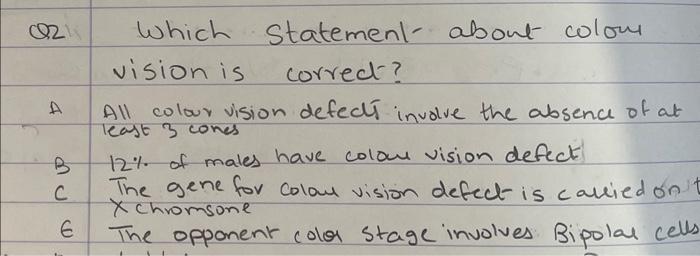 Q2 Which statement about colour
vision is correct?
A All colour vision defects involve the absence of at
least 3 cones
B 12% of males have colour vision defect
C The gene for colour vision defect is carried on
X Chromsone
E The opponent color stage involves Bipolar cells